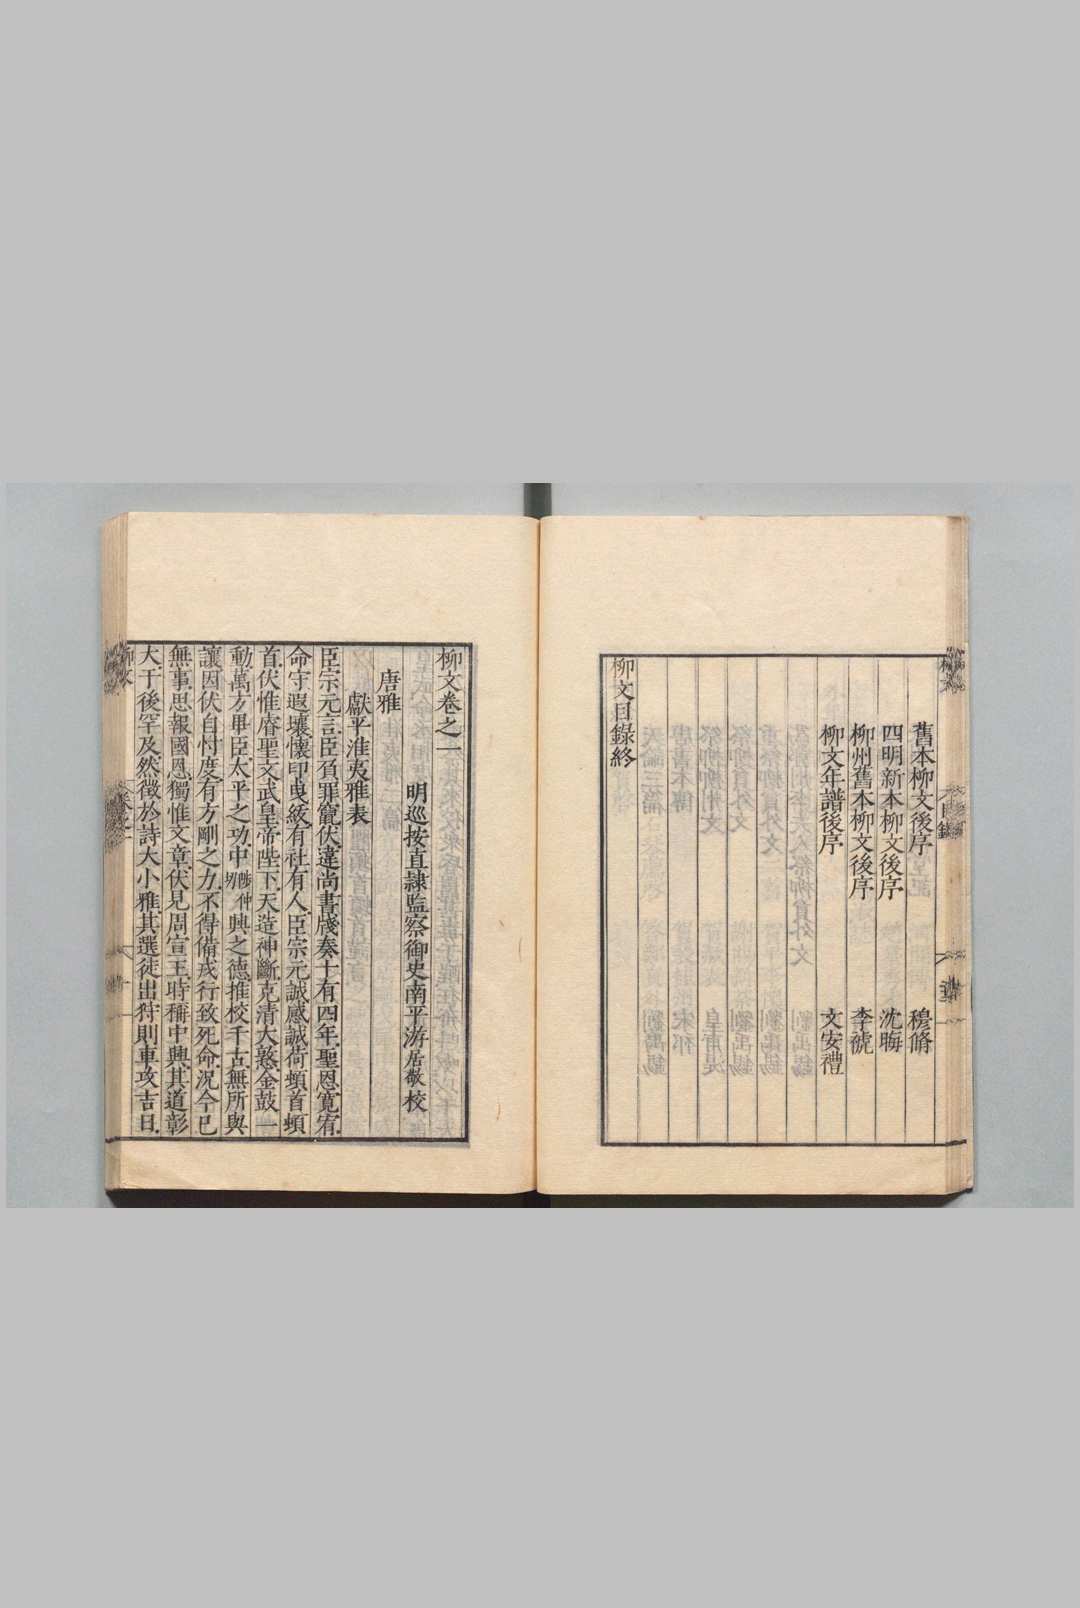 舊本柳文後序 穆脩
四明新本柳文後序 沈晦
柳州舊本柳文後序 李褫
柳文年譜後序 文安禮
柳文目錄終
柳文卷之一
明巡按直隸監察御史南平游居敬校
唐雅
獻平淮夷雅表
臣宗元言臣負罪竄伏違尚書牋奏十有四年聖恩寬宥
命守遐壤懷印曳紱有社有人臣宗元誠感誠荷頓首頓
首伏惟睿聖文武皇帝陛下天造神斷克清大憝金鼓一
動萬方畢臣太平之功中興之德推校千古無所與
讓因伏自忖度有方剛之力不得備戎行致死命況今已
無事思報國恩獨惟文章伏見周宣王時稱中興其道彰
大于後罕及然徵於詩大小雅其選徒出狩則車攻吉日